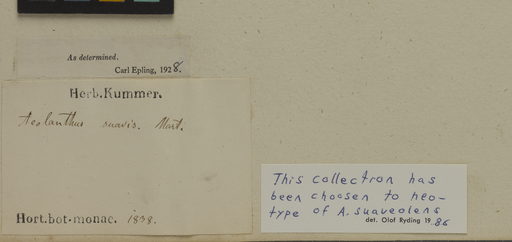 As determined.
Carl Epling, 1928.
Herb. Kummer.
Aeolanthus suavis. Mart.
Hort. bot. monac. 1838.
This collection has
been choosen to neo-
type of A. suaveolens
det. Olof Ryding 1986